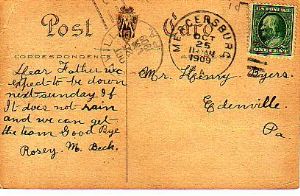 Post
CORRESPONDENCE
MERCERSBURG
OCT
25
1909
Dear Father we
expect to be down
next sunday if
It does not rain
and we can get
the team Good Bye
Rosey. M. Beck.
Mr. Henry Byers.
Edenville.
Pa
ONE CENT